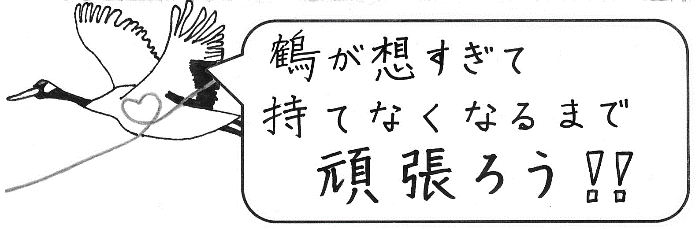 鶴が想すぎて
持てなくなるまで
頑張ろう!!